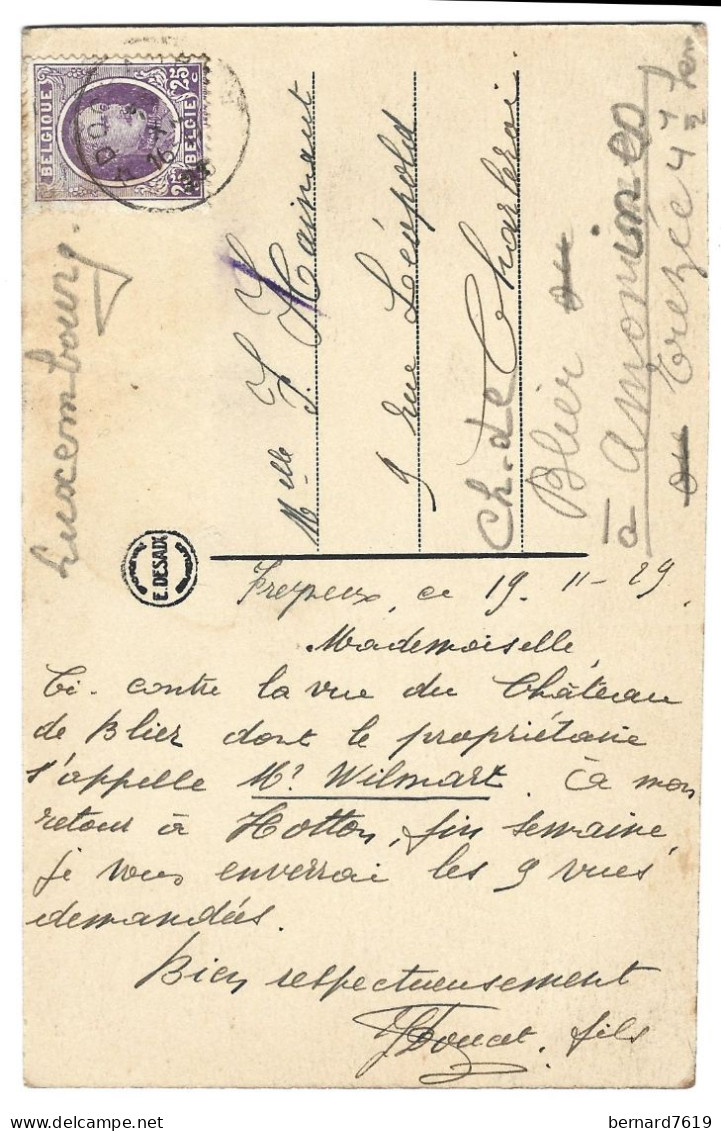 BELGIQUE
25 C
BELGIE
Luxembourg.
Melle J. Hainaut
9 rue Léopold
Charleroi
Ch. de
Blier ou
à amonines
ou Erezée 4 1/2 km
E. DESAIX
ce 19-11-29
Mademoiselle,
Ci-contre la vue du Château
de Blier dont le propriétaire
s'appelle Mr. Wilmart. à mon
retour à Hotton, fin semaine,
je vous enverrai les 9 vues
demandées.
Bien respectueusement
fils
bernard7619